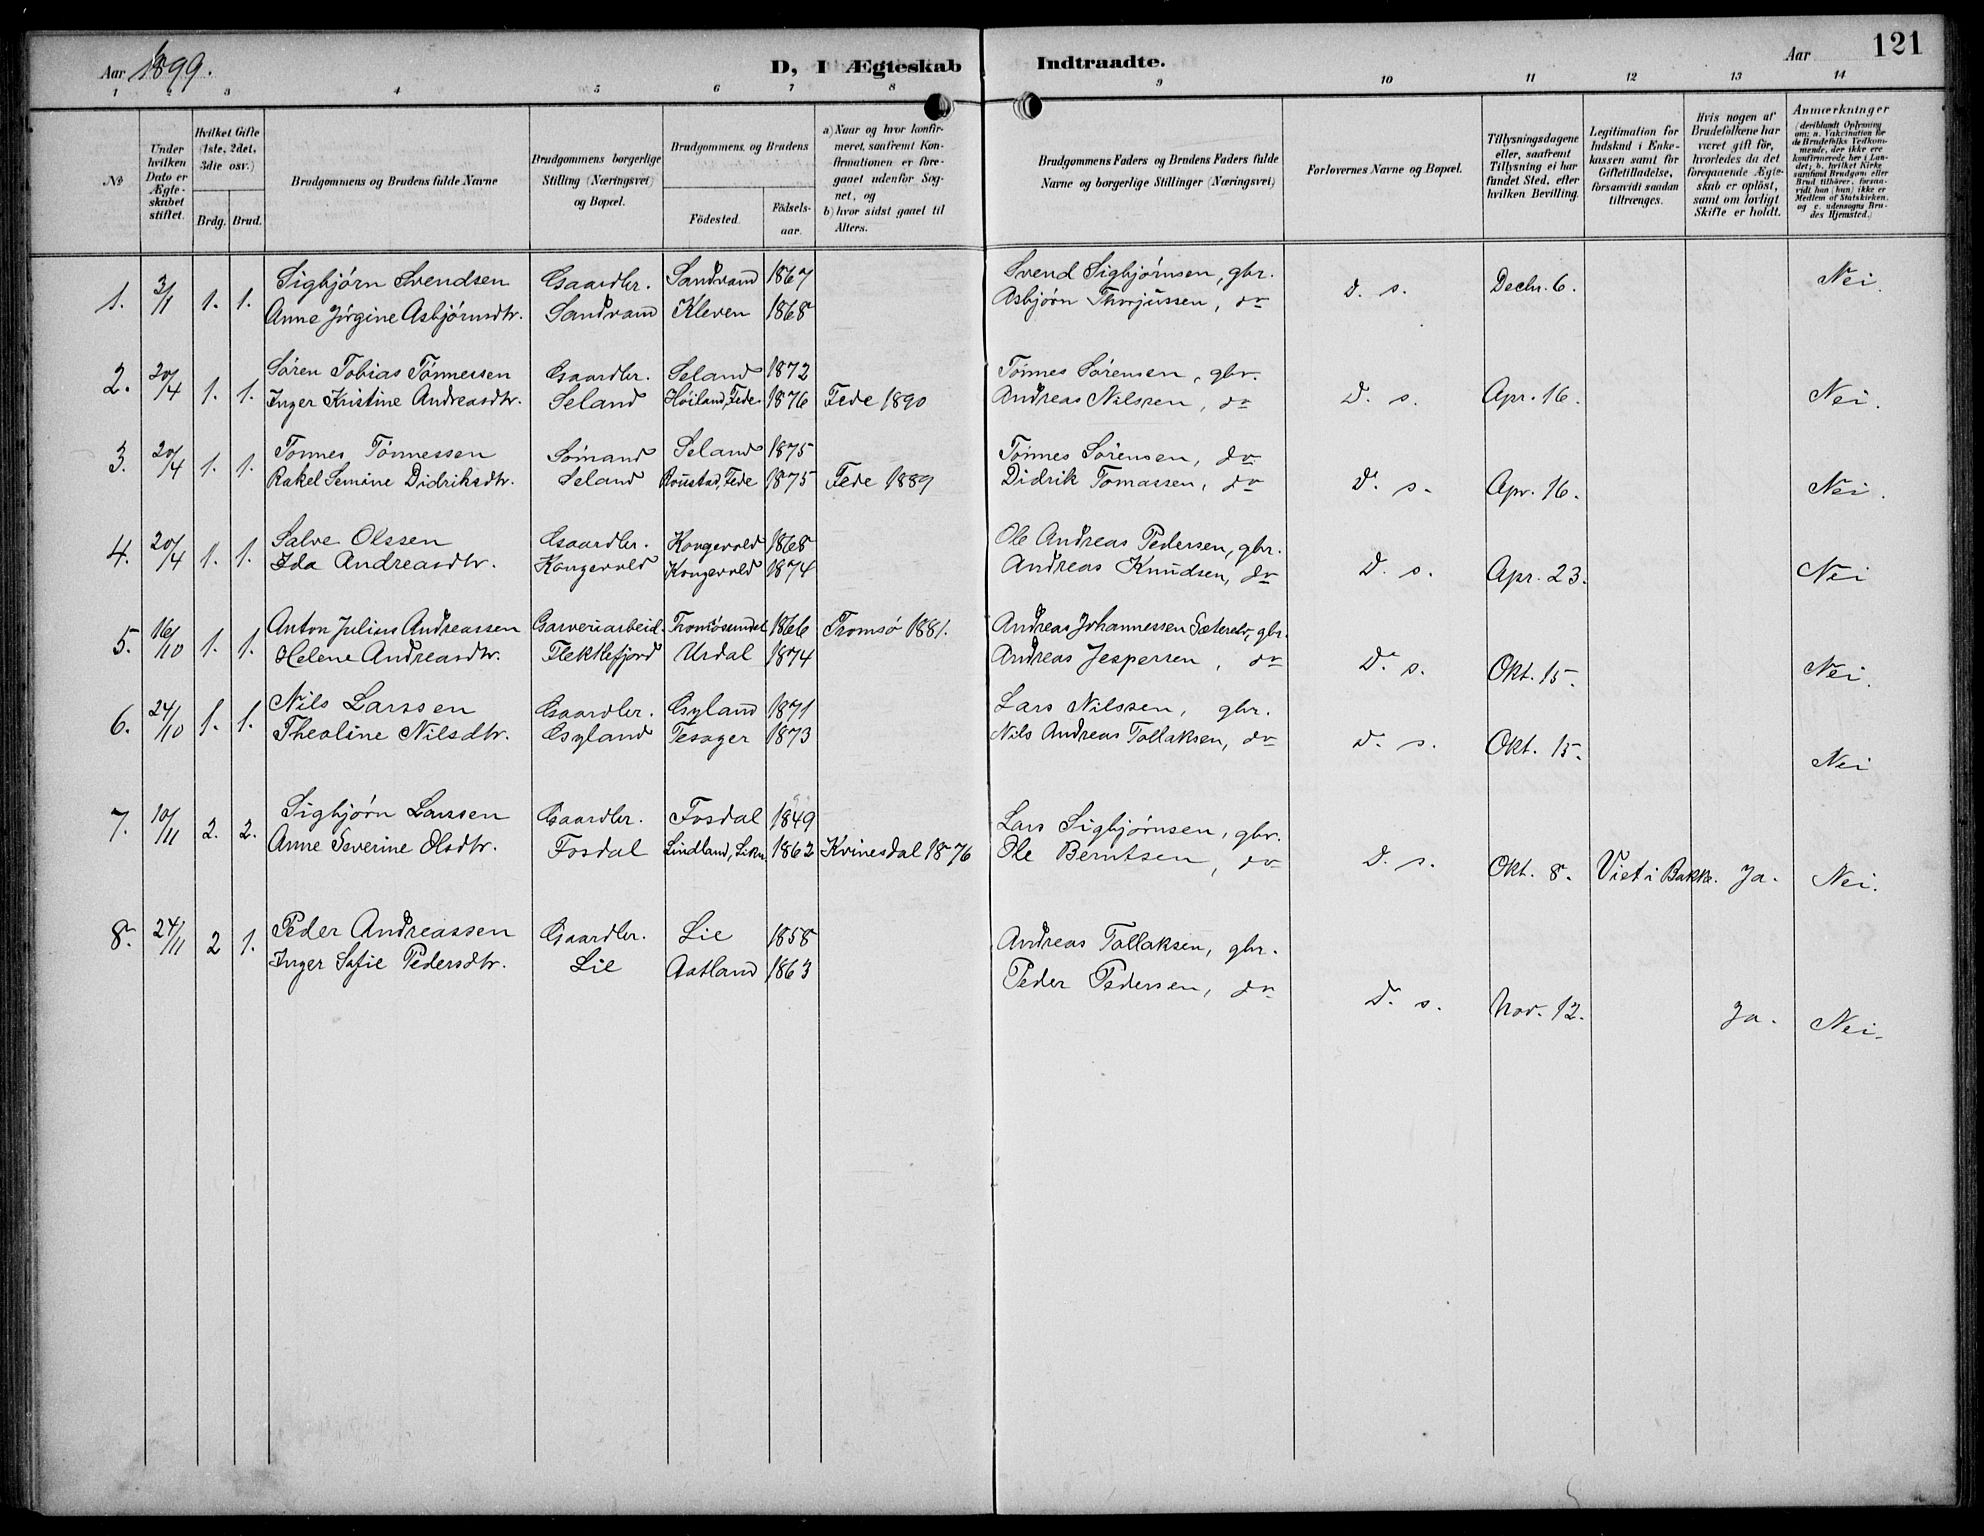 Aar 1899.
D, I Ægteskab Indtraadte.
Aar
121
1 2 3 4 5 6 7 8 9 10 11 12 13 14
№
Under hvilken Dato er Ægteskabet stiftet.
Hvilket Gifte (1ste, 2det, 3die osv.)
Brdg. Brud.
Brudgommens og Brudens fulde Navne
Brudgommens borgerlige Stilling (Næringsvei) og Bopæl.
Brudgommens og Brudens
Födested.
Födsels-aar.
a) Naar og hvor konfirmeret, saafremt Konfirmationen er foregaaet udenfor Sognet, og
b) hvor sidst gaaet til Alters.
Brudgommens Faders og Brudens Faders fulde Navne og borgerlige Stillinger (Næringsvei)
Forlovernes Navne og Bopæl.
Tillysningsdagene eller, saafremt Tillysning ei har fundet Sted, efter hvilken Bevilling.
Legitimation for Indskud i Enkekassen samt for Giftetilladelse, forsaavidt saadan tiltrænges.
Hvis nogen af Brudefolkene har været gift för, hvorledes da det foregaaende Ægteskab er oplöst, samt om lovligt Skifte er holdt.
Anmærkninger
(deriblandt Oplysning om: a. Vakcination for de Brudefolks Vedkommende, der ikke ere konfirmerede her i Landet; b. hvilket Kirkesamfund Brudgom eller Brud tilhører, forsaavidt han (hun) ikke er Medlem af Statskirken, og c. udensogns Brudes Hjemsted.)
1. 3/1 1. 1. Sigbjørn Svendsen Gaardbr. Sandvand 1867 Svend Sigbjørnsen, gbr. D. s. Decbr. 6. Nei.
Anne Jørgine Asbjørnsdtr. Sandvand Kleven 1868 Asbjørn Thorjussen, do
2. 20/4 1. 1. Søren Tobias Tønnessen Gaardbr. Seland 1872 Tønnes Sørensen, gbr. D. s. Apr. 16. Nei.
Inger Kristine Andreasdtr. Seland Høiland, Fede 1876 Fede 1890 Andreas Nilssen, do
3. 20/4 1. 1. Tønnes Tønnessen Sømand Seland 1875 Tønnes Sørensen, do D. s. Apr. 16. Nei.
Rakel Semine Didriksdtr. Seland Røiistad, Fede 1875 Fede 1889 Didrik Tomassen, do
4. 20/4 1. 1. Salve Olssen Gaardbr. Kongevold 1868 Ole Andreas Pedersen, gbr. D. s. Apr. 23. Nei
Ida Andreasdtr. Kongevold Kongevold 1874 Andreas Knudsen, do
5. 16/10 1. 1. Anton Julius Andreassen Garveriarbeid. Tromsøsundet 1866 Tromsø 1881. Andreas Johannessen Sæterelv, gbr. D. s. Okt. 15. Nei.
Helene Andreasdtr. Flekkefjord Urdal 1874 Andreas Jespersen, do
6. 24/10 1. 1. Nils Larssen Gaardbr. Gyland 1871 Lars Nilssen, gbr. D. s. Okt. 15. Nei
Theoline Nilsdtr. Gyland Tesager 1873 Nils Andreas Tollaksen, do
7. 10/11 2. 2. Sigbjørn Larssen Gaardbr. Fosdal 1849 Lars Sigbjørnsen, gbr. D. s. Okt. 8. Viet i Bakke. Ja. Nei.
Anne Severine Olsdtr. Fosdal Lindland, Likn. 1862 Kvinesdal 1876 Ole Berntsen, do
8. 24/11 2 1. Peder Andreassen Gaardbr. Lie 1858 Andreas Tollaksen, gbr. D. s. Nov. 12. Ja. Nei.
Inger Sofie Pedersdtr. Lie Aatland 1863 Peder Pedersen, do